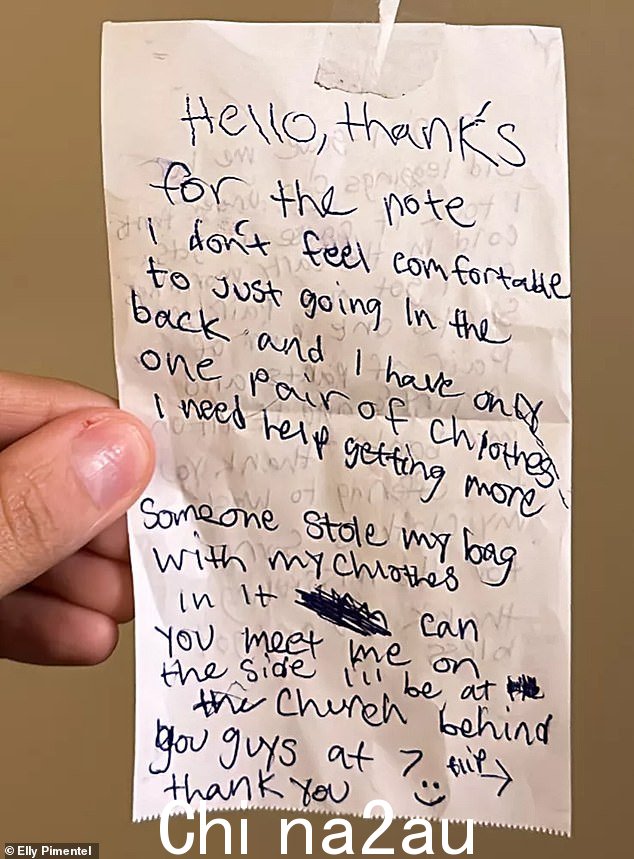 Hello, thanks
for the note
I don't feel comfortable
to just going in the
back and I have only
one pair of chlothes
I need help getting more
Someone stole my bag
with my chlothes
in it can
you meet me on
the side I'll be at
the church behind
you guys at ?
flip →
thank you :)
Chi na2au
© Elly Pimentel